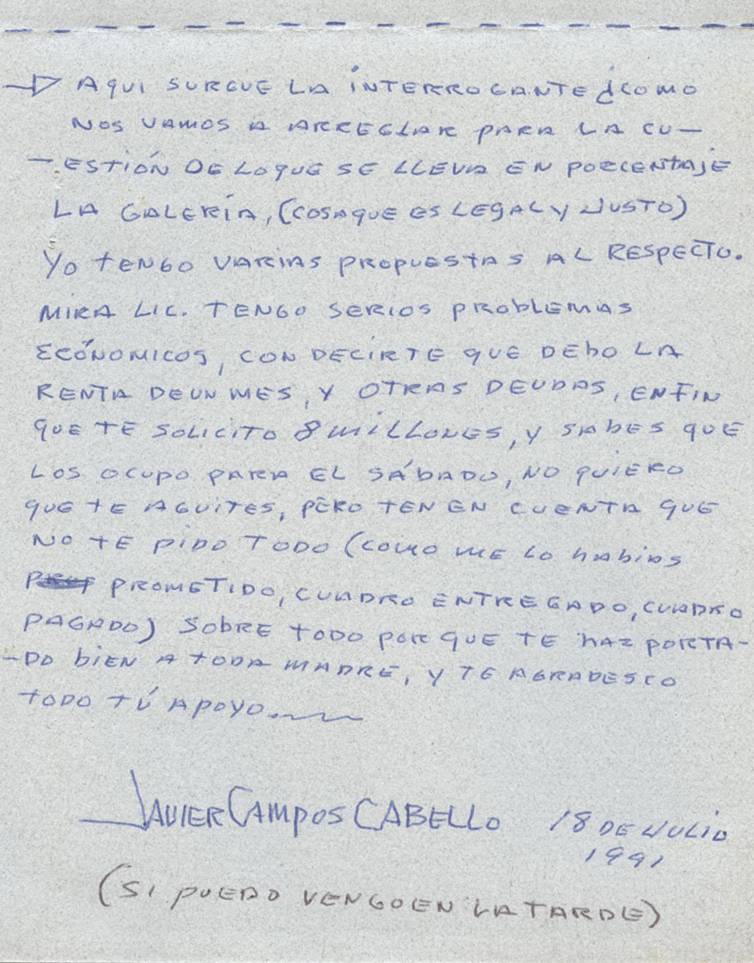 AQUI SURGUE LA INTERROGANTE ¿COMO
NOS VAMOS A ARREGLAR PARA LA CU-
-ESTIÓN DE LO QUE SE LLEVA EN PORCENTAJE
LA GALERÍA, (COSA QUE ES LEGAL Y JUSTO)
YO TENGO VARIAS PROPUESTAS AL RESPECTO.
MIRA LIC. TENGO SERIOS PROBLEMAS
ECÓNOMICOS, CON DECIRTE QUE DEBO LA
RENTA DE UN MES, Y OTRAS DEUDAS, EN FIN
QUE TE SOLICITO 8 MILLONES, Y SABES QUE
LOS OCUPO PARA EL SÁBADO, NO QUIERO
QUE TE AGUITES, PERO TEN EN CUENTA QUE
NO TE PIDO TODO (COMO ME LO habias
PROMETIDO, CUADRO ENTREGADO, CUADRO
PAGADO) SOBRE TODO POR QUE TE haz PORTA-
-DO bIEN A TODA MADRE, Y TE AGRADESCO
TODO TÚ APOYO.
JAVIER CAMPOS CABELLO 18 DE JULIO
1991
(SI PUEDO VENGO EN LA TARDE)